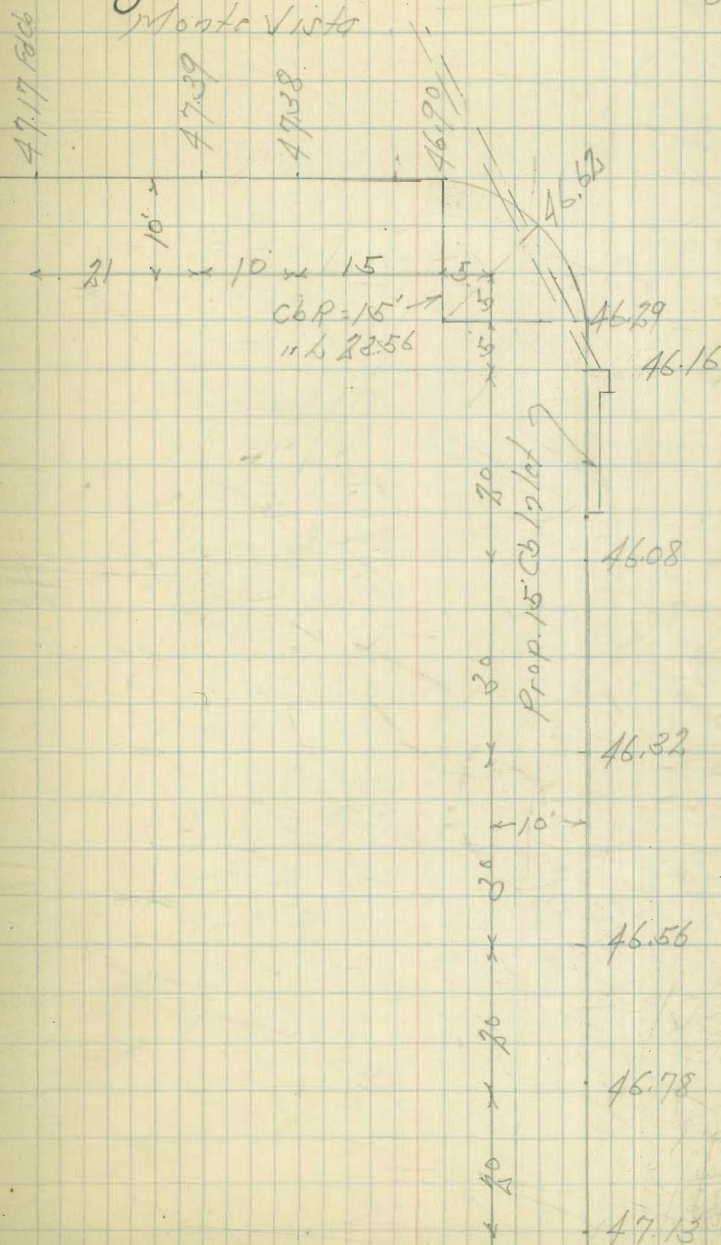 Monte Vista
47.17 Fd Cb
47.39
47.38
46.90
46.62
10'
21
10
15
5
5
5
CbR = 15'
" L 23.56
46.29
46.16
20
Prop. 15' Cb Inlet
46.08
30
46.32
10'
30
46.56
20
46.78
20
47.13